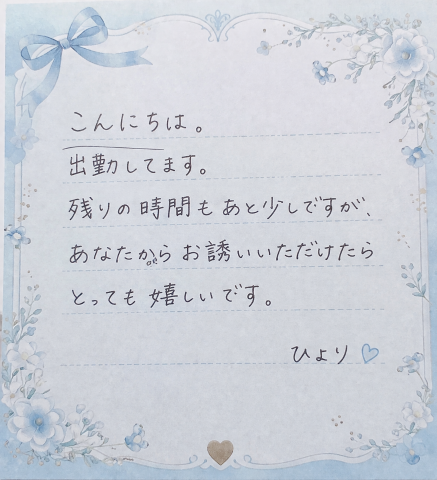 こんにちは。
出勤してます。
残りの時間もあと少しですが、
あなたからお誘いいただけたら
とっても嬉しいです。
ひより♡